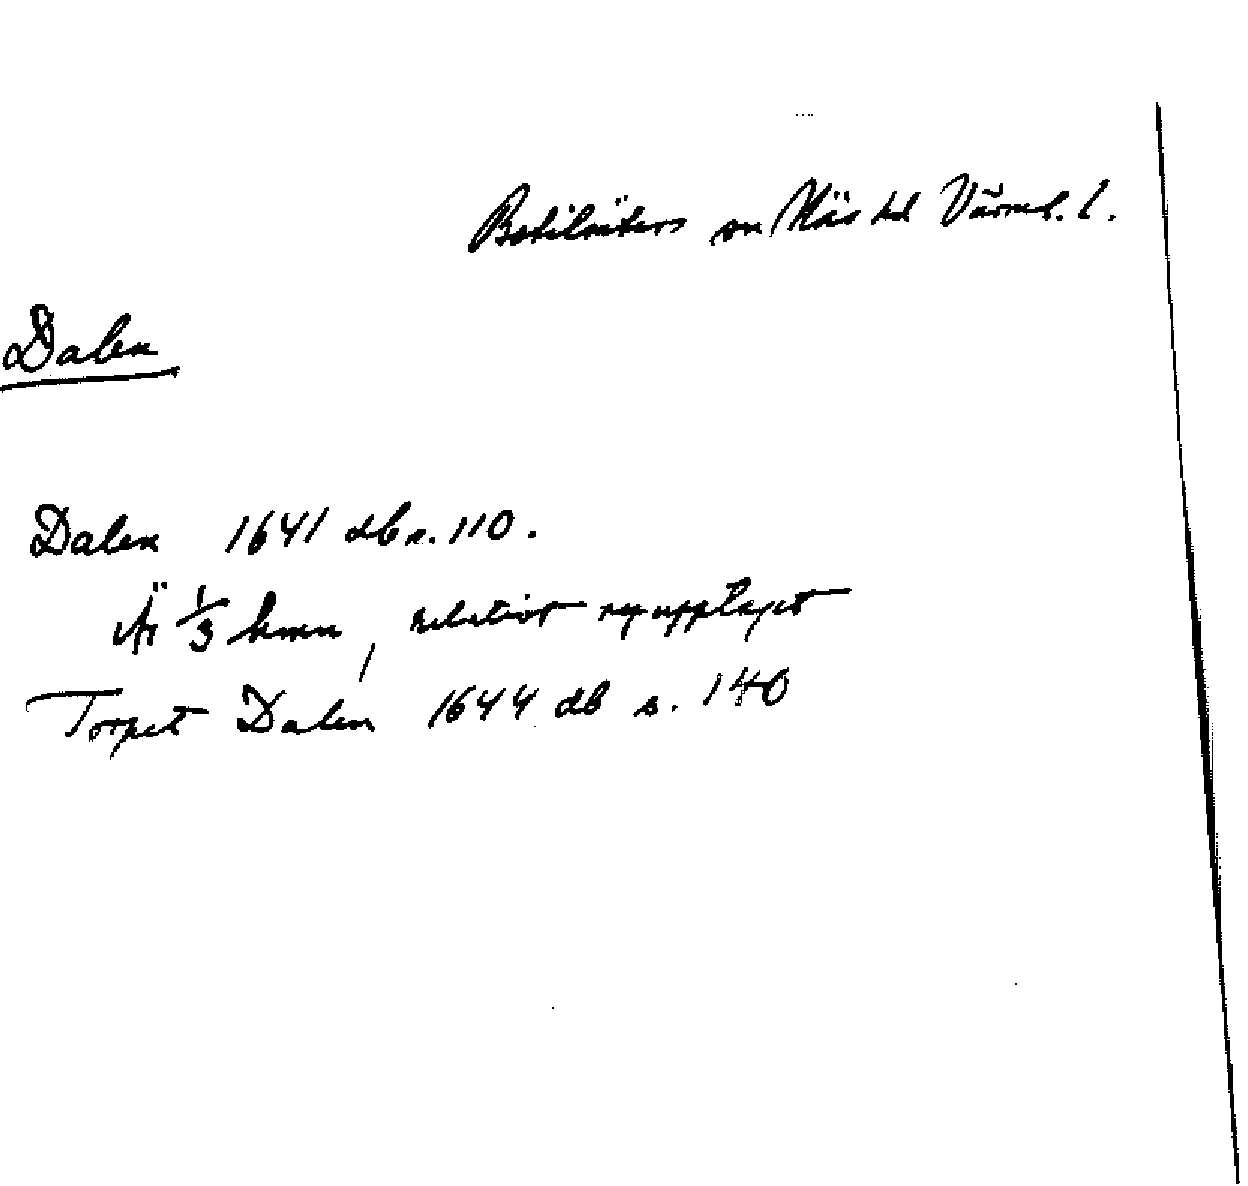 Botilsäters sn Näs hd Värml. l.
Dalen
Dalen 1641 db s. 110.
Är 1/3 hmn, relativt nyupptaget
Torpet Dalen 1644 db s. 140